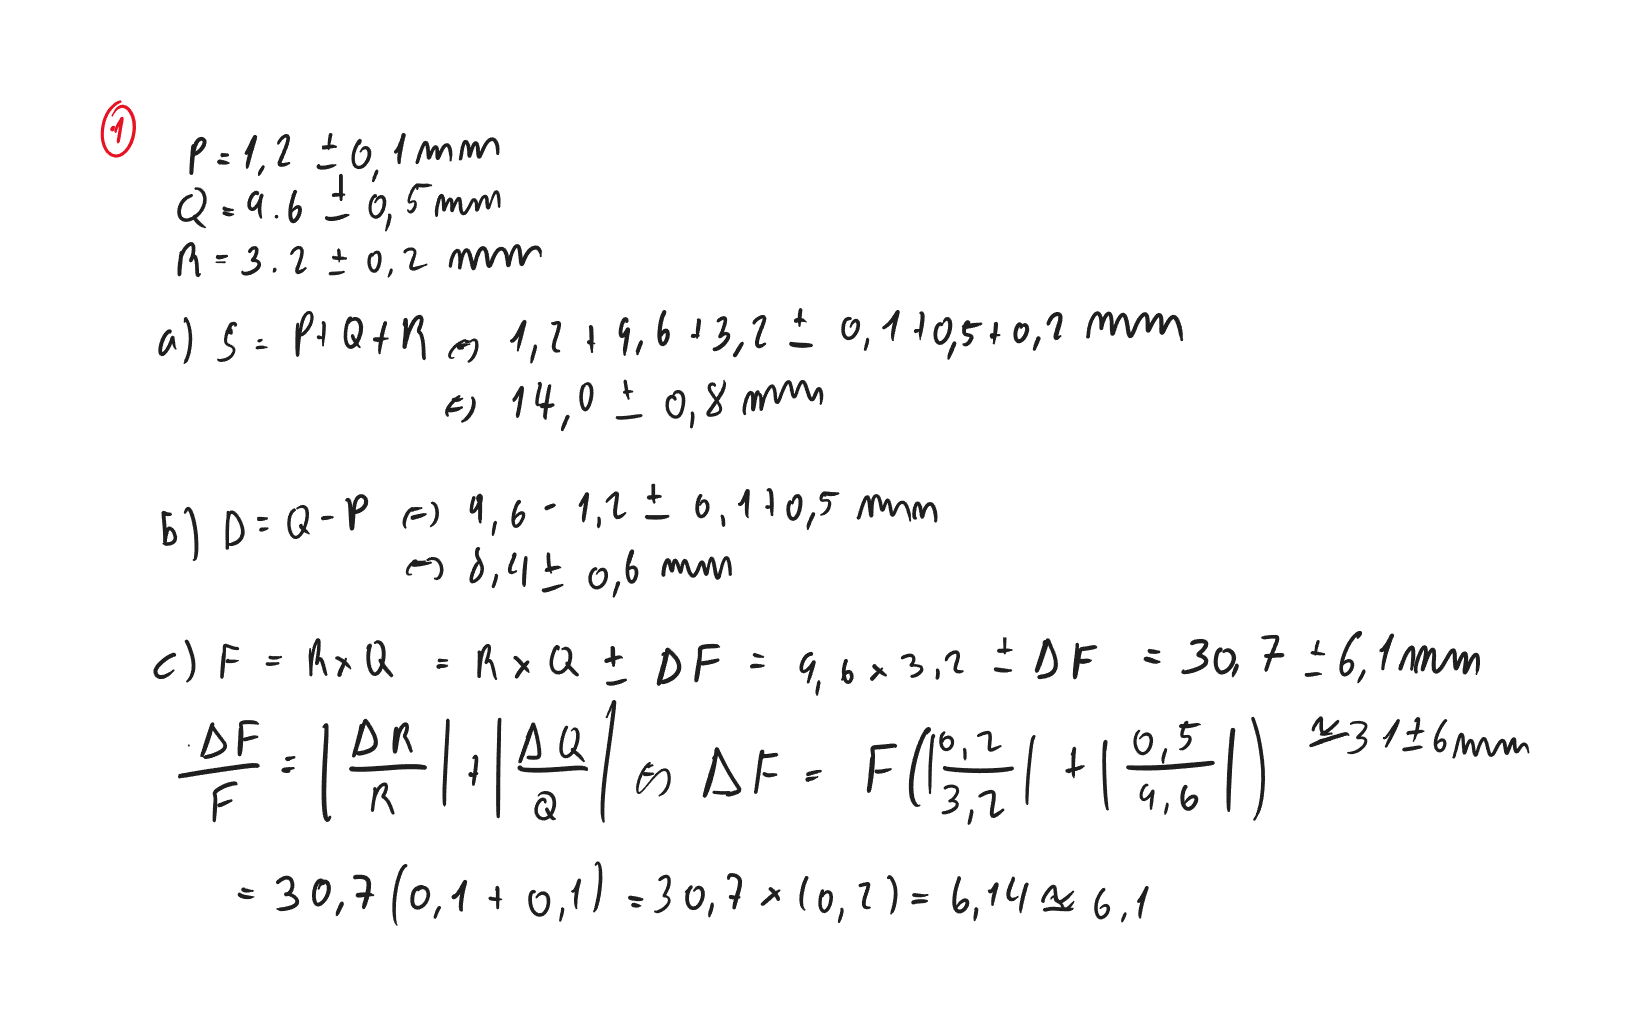 1
P = 1,2 ± 0,1 mm
Q = 9.6 ± 0,5 mm
R = 3.2 ± 0,2 mm
a) S = P + Q + R ⇔ 1,2 + 9,6 + 3,2 ± 0,1 + 0,5 + 0,2 mm
⇔ 14,0 ± 0,8 mm
b) D = Q - P ⇔ 9,6 - 1,2 ± 0,1 + 0,5 mm
⇔ 8,4 ± 0,6 mm
c) F = R x Q = R x Q ± ΔF = 9,6 x 3,2 ± ΔF = 30,7 ± 6,1 mm
≈ 31 ± 6 mm
ΔF/F = |ΔR/R| + |ΔQ/Q| ⇔ ΔF = F(|0,2/3,2| + |0,5/9,6|)
= 30,7 (0,1 + 0,1) = 30,7 x (0,2) = 6,14 ≈ 6,1